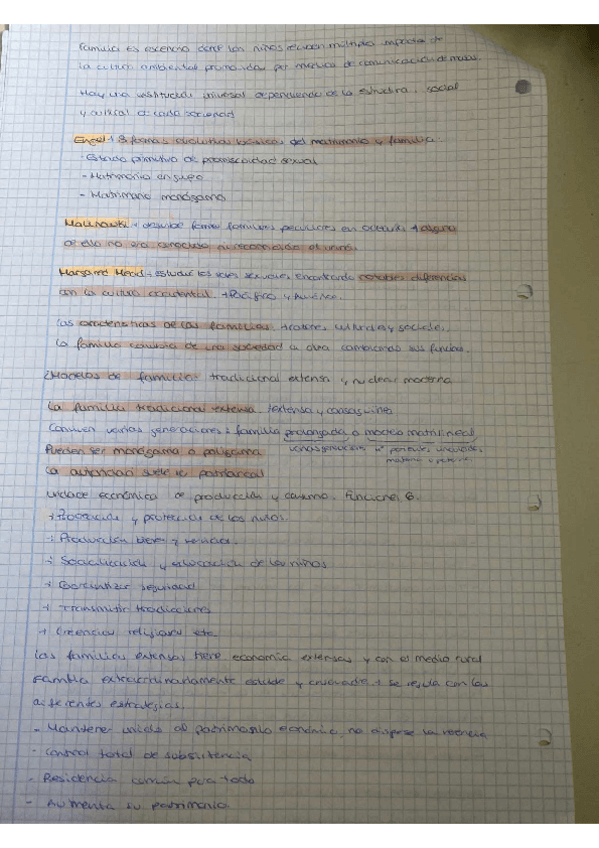 familia es escenario donde los niños reciben múltiples impactos de
la cultura ambiental promovidas por medios de comunicación de masas.
Hay una institución universal dependiendo de la estructura social
y cultural de cada sociedad
Engel: 3 formas evolutivas básicas del matrimonio y familia.
- Estado primitivo de promiscuidad sexual
- Matrimonio en grupo
- Matrimonio monógamo
describe formas familiares peculiares en culturas
de ella no era
Margared Mead: estudia los roles sexuales encontrando notables diferencias
con la cultura occidental.
Las características de las familias culturales y sociales.
La familia cambia de una sociedad a otra cambiando sus funciones.
2 Modelos de familia: tradicional extensa y nuclear moderna
La familia tradicional extensa
Conviven varias generaciones: familia prolongada o modelo matrilineal
Pueden ser monógama o polígama
varias generaciones
La autoridad suele ser patriarcal
Unidad económica de producción y consumo. Funciones 6.
+ Procreación y protección de los niños.
+ Producción bienes y servicios.
+ Socialización y educación de los niños
+ Garantizar seguridad
+ Transmitir tradiciones
+ Creencias religiosas etc
Las familias extensas tiene economía extensas y con el medio rural
Familia extraordinariamente estable y se regula con las
diferentes estrategias.
- Mantener unido el patrimonio económico, no dispersar la herencia
- Control total de subsistencia
- Residencia común para todo
- Aumenta su patrimonio.